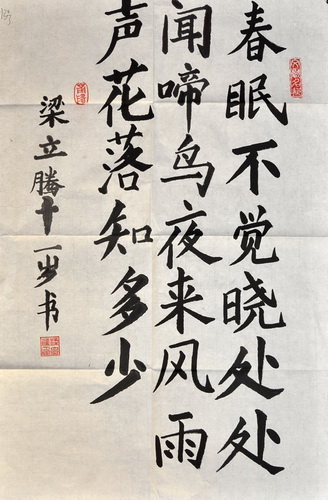 春眠不觉晓处处
闻啼鸟夜来风雨
声花落知多少
梁立腾十一岁书